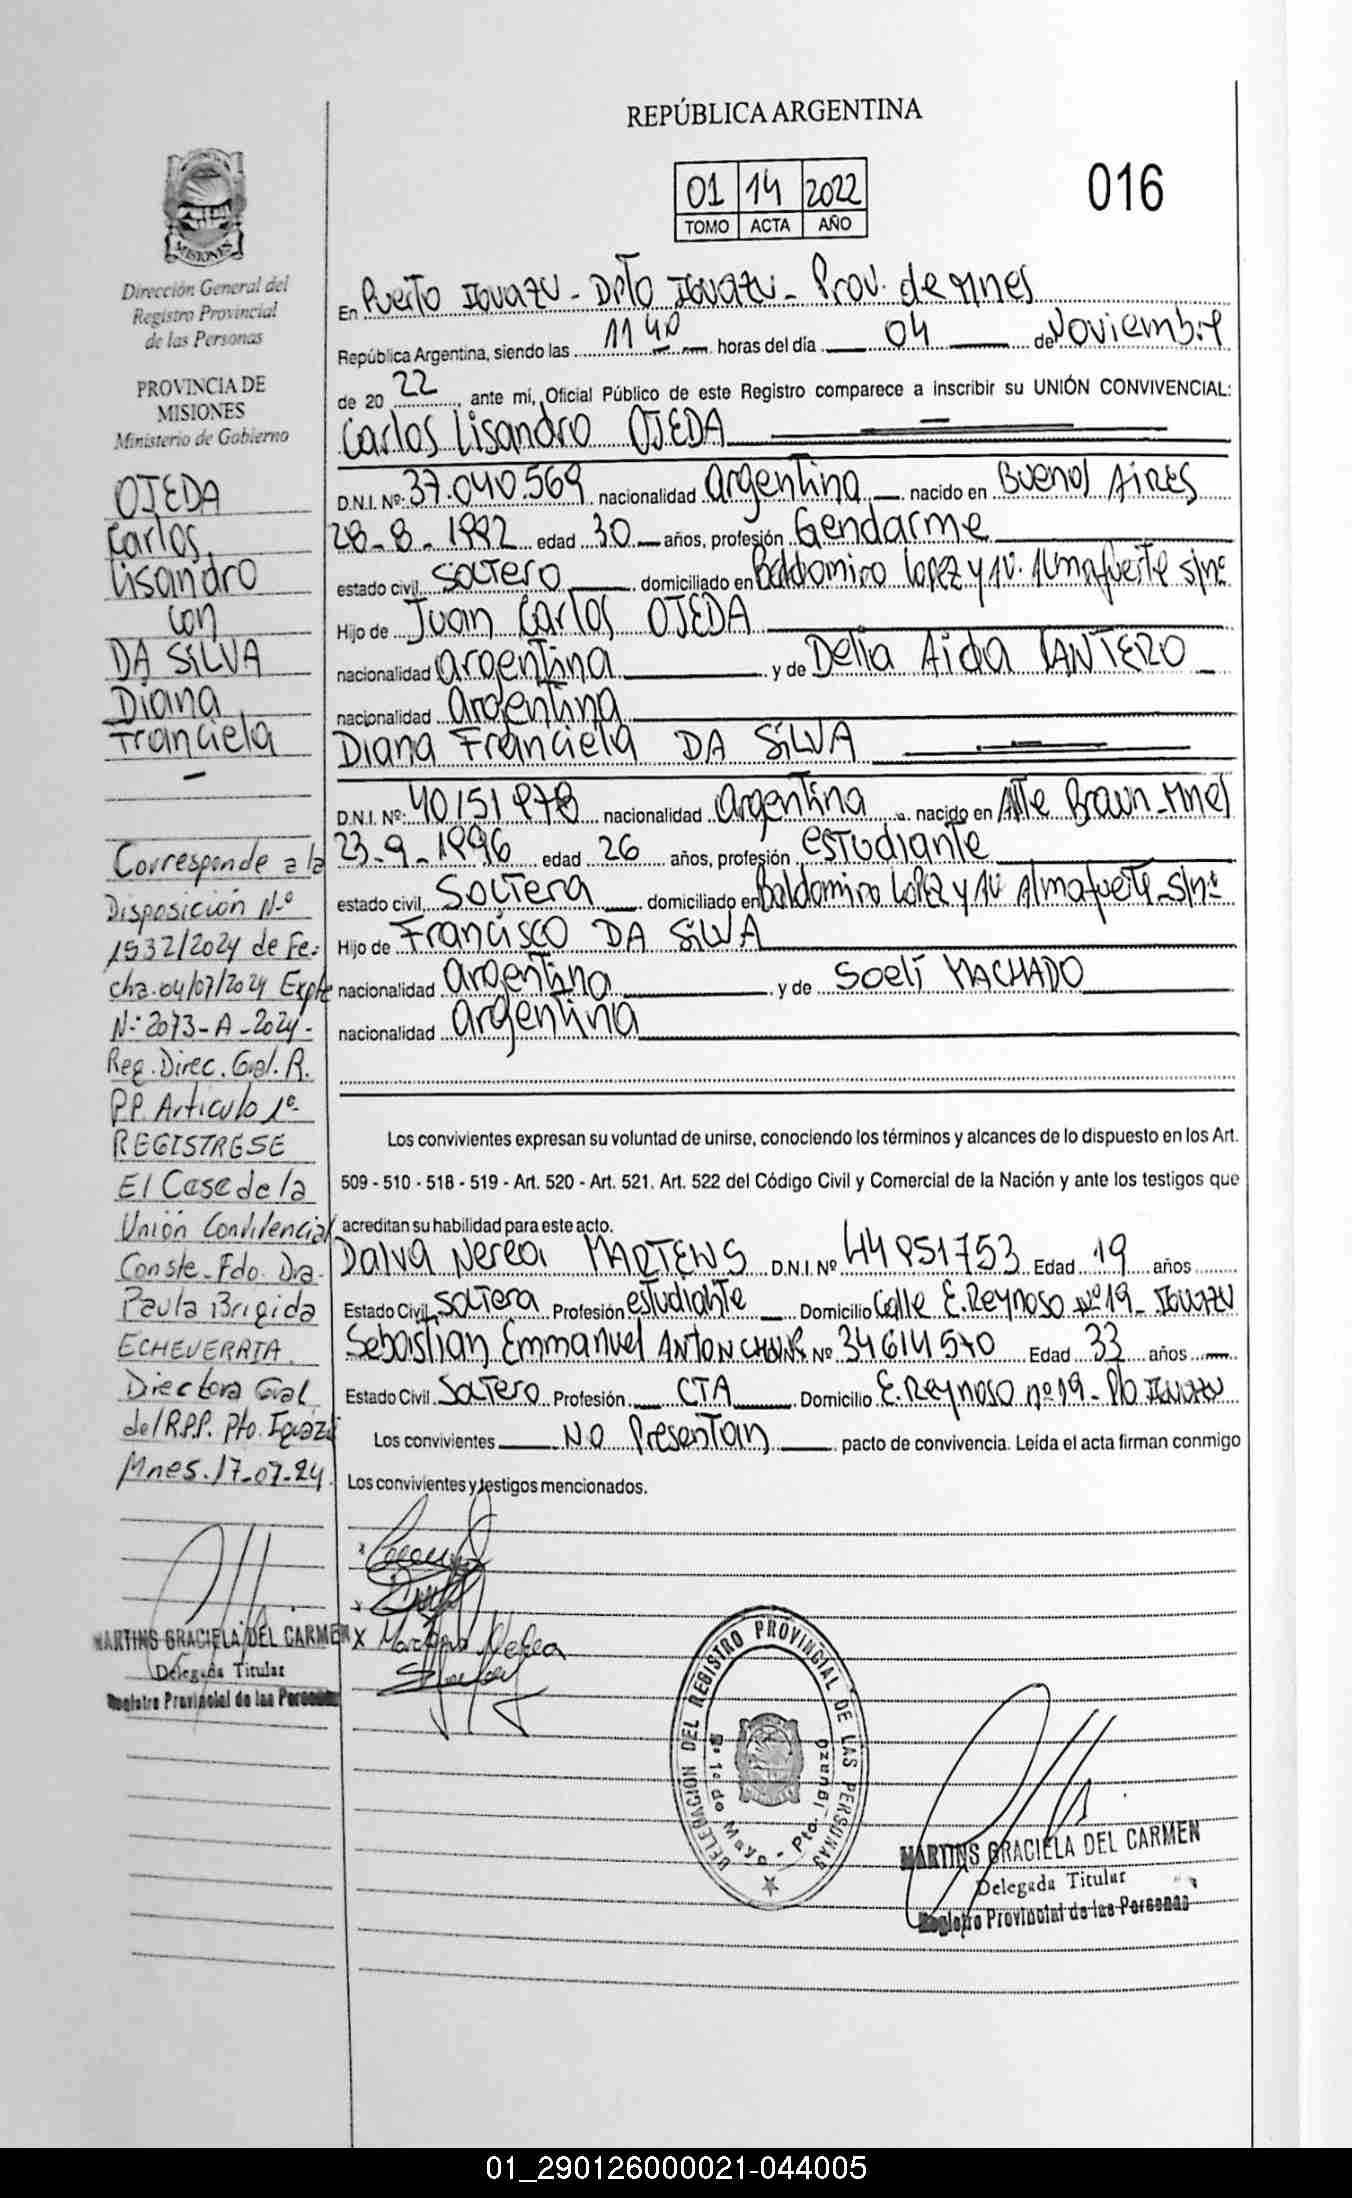 REPÚBLICA ARGENTINA
01 14 2022
TOMO ACTA AÑO
016
MISIONES
Dirección General del
Registro Provincial
de las Personas
PROVINCIA DE
MISIONES
Ministerio de Gobierno
OJEDA
Carlos
Lisandro
con
DA SILVA
Diana
Franciela
Corresponde a la
Disposición Nº
1932/2024 de Fe-
cha 04/07/2024 Expte
Nº 2073-A-2024-
Reg. Direc. Gral. R.
P.P. Articulo 1º-
REGISTRESE
El Cese de la
Unión Convivencial
Conste. Fdo. Dra.
Paula Brigida
ECHEVERRIA
Directora Gral
del R.P.P. Pto. Iguazú
Mnes. 17-07-24
MARTINS GRACIELA DEL CARMEN
Delegada Titular
Registro Provincial de las Personas
En Puerto Iguazu - Dpto Iguazu - Prov. de Mnes
República Argentina, siendo las 11 40 horas del día 04 de Noviembre
de 20 22 ante mí, Oficial Público de este Registro comparece a inscribir su UNIÓN CONVIVENCIAL:
Carlos Lisandro OJEDA
D.N.I. Nº: 37.040.569 nacionalidad argentina nacido en Buenos Aires
28-8-1992 edad 30 años, profesión Gendarme
estado civil soltero domiciliado en Baldomiro Lopez y Av. Almafuerte s/nº
Hijo de Juan Carlos OJEDA
nacionalidad argentina y de Delia Aida CANTERO
nacionalidad argentina
Diana Franciela DA SILVA
D.N.I. Nº: 40151978 nacionalidad argentina nacido en Alte Brown-Mnes
23-9-1996 edad 26 años, profesión estudiante
estado civil soltera domiciliado en Baldomiro Lopez y Av Almafuerte s/nº
Hijo de Francisco DA SILVA
nacionalidad argentina y de Soeli MACHADO
nacionalidad argentina
Los convivientes expresan su voluntad de unirse, conociendo los términos y alcances de lo dispuesto en los Art.
509 - 510 - 518 - 519 - Art. 520 - Art. 521. Art. 522 del Código Civil y Comercial de la Nación y ante los testigos que
acreditan su habilidad para este acto.
Dalva Nerea MARTENS D.N.I. Nº 44951753 Edad 19 años
Estado Civil soltera Profesión estudiante Domicilio Calle E. Reynoso nº 19 - Iguazu
Sebastian Emmanuel Nº 34614570 Edad 33 años
Estado Civil soltero Profesión CTA Domicilio E. Reynoso nº 19 - Pto Iguazu
Los convivientes NO Presentan pacto de convivencia. Leída el acta firman conmigo
Los convivientes y testigos mencionados.
X Nerea
DELEGACION DEL REGISTRO PROVINCIAL DE LAS PERSONAS
Bº 1º de Mayo - Pto. Iguazú
MARTINS GRACIELA DEL CARMEN
Delegada Titular
Registro Provincial de las Personas
01_290126000021-044005